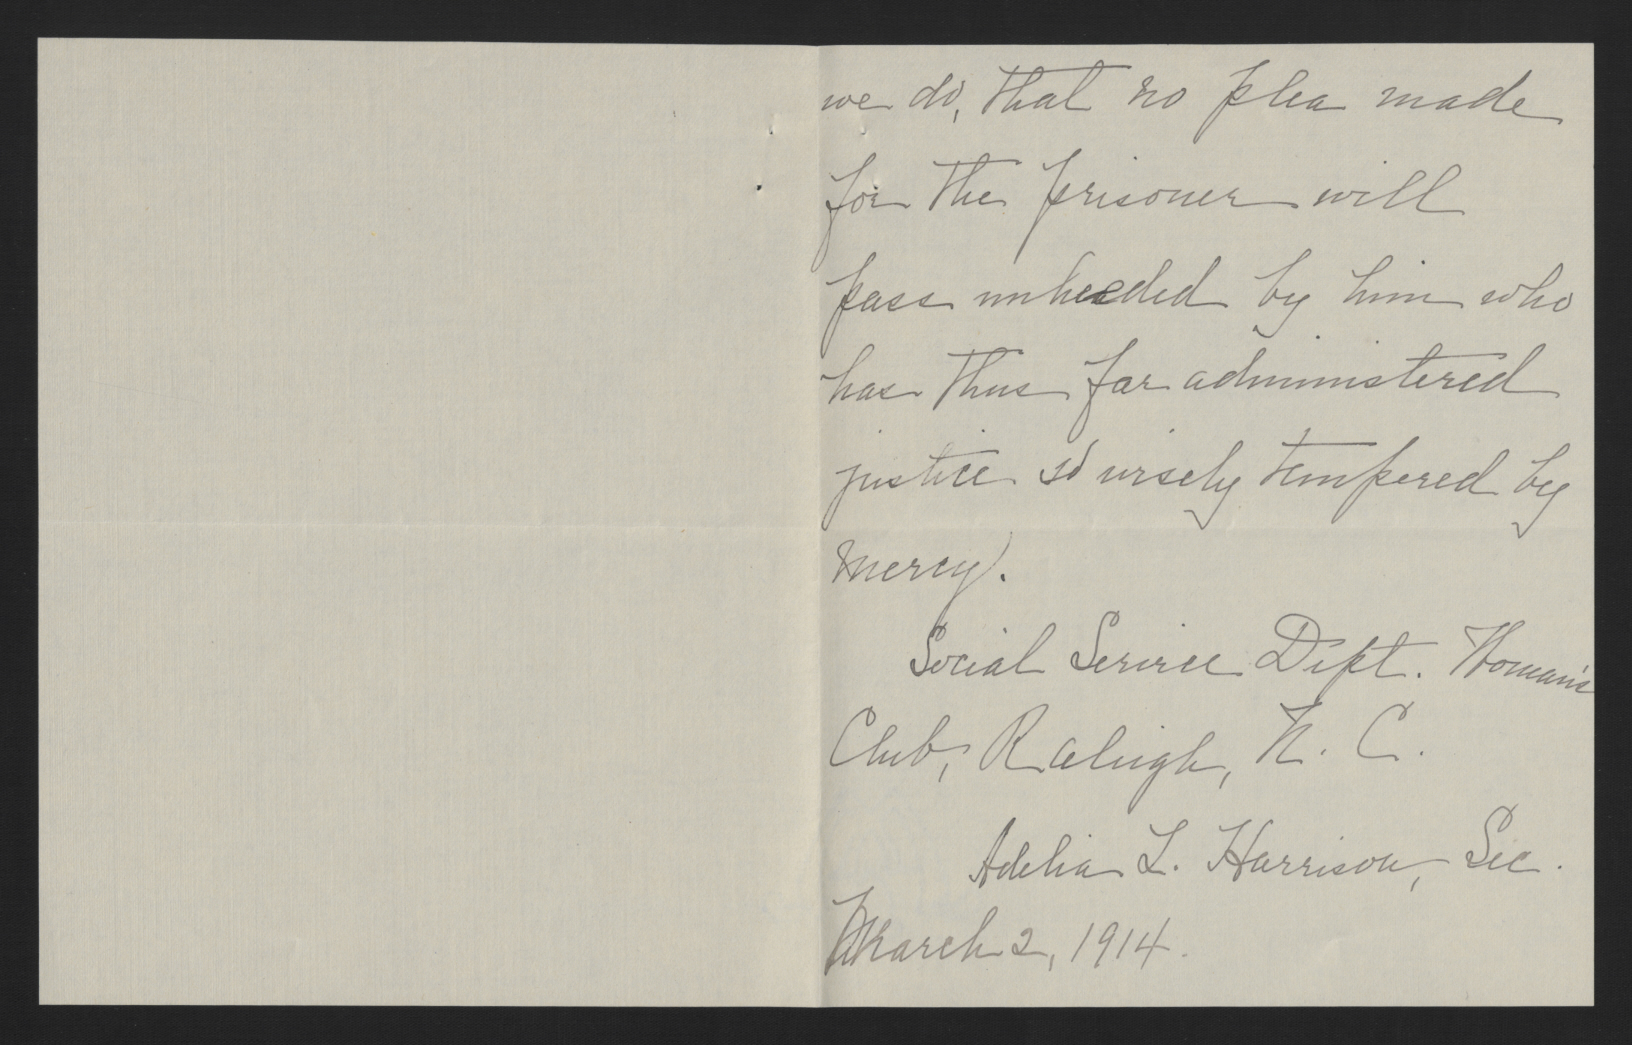 we do, that no plea made
for the prisoner will
pass unheeded by him who
has thus far administered
justice so wisely tempered by
mercy.
Social Service Dept. Woman's
Club, Raleigh, N. C.
Adelia L. Harrison, Sec.
March 2, 1914.